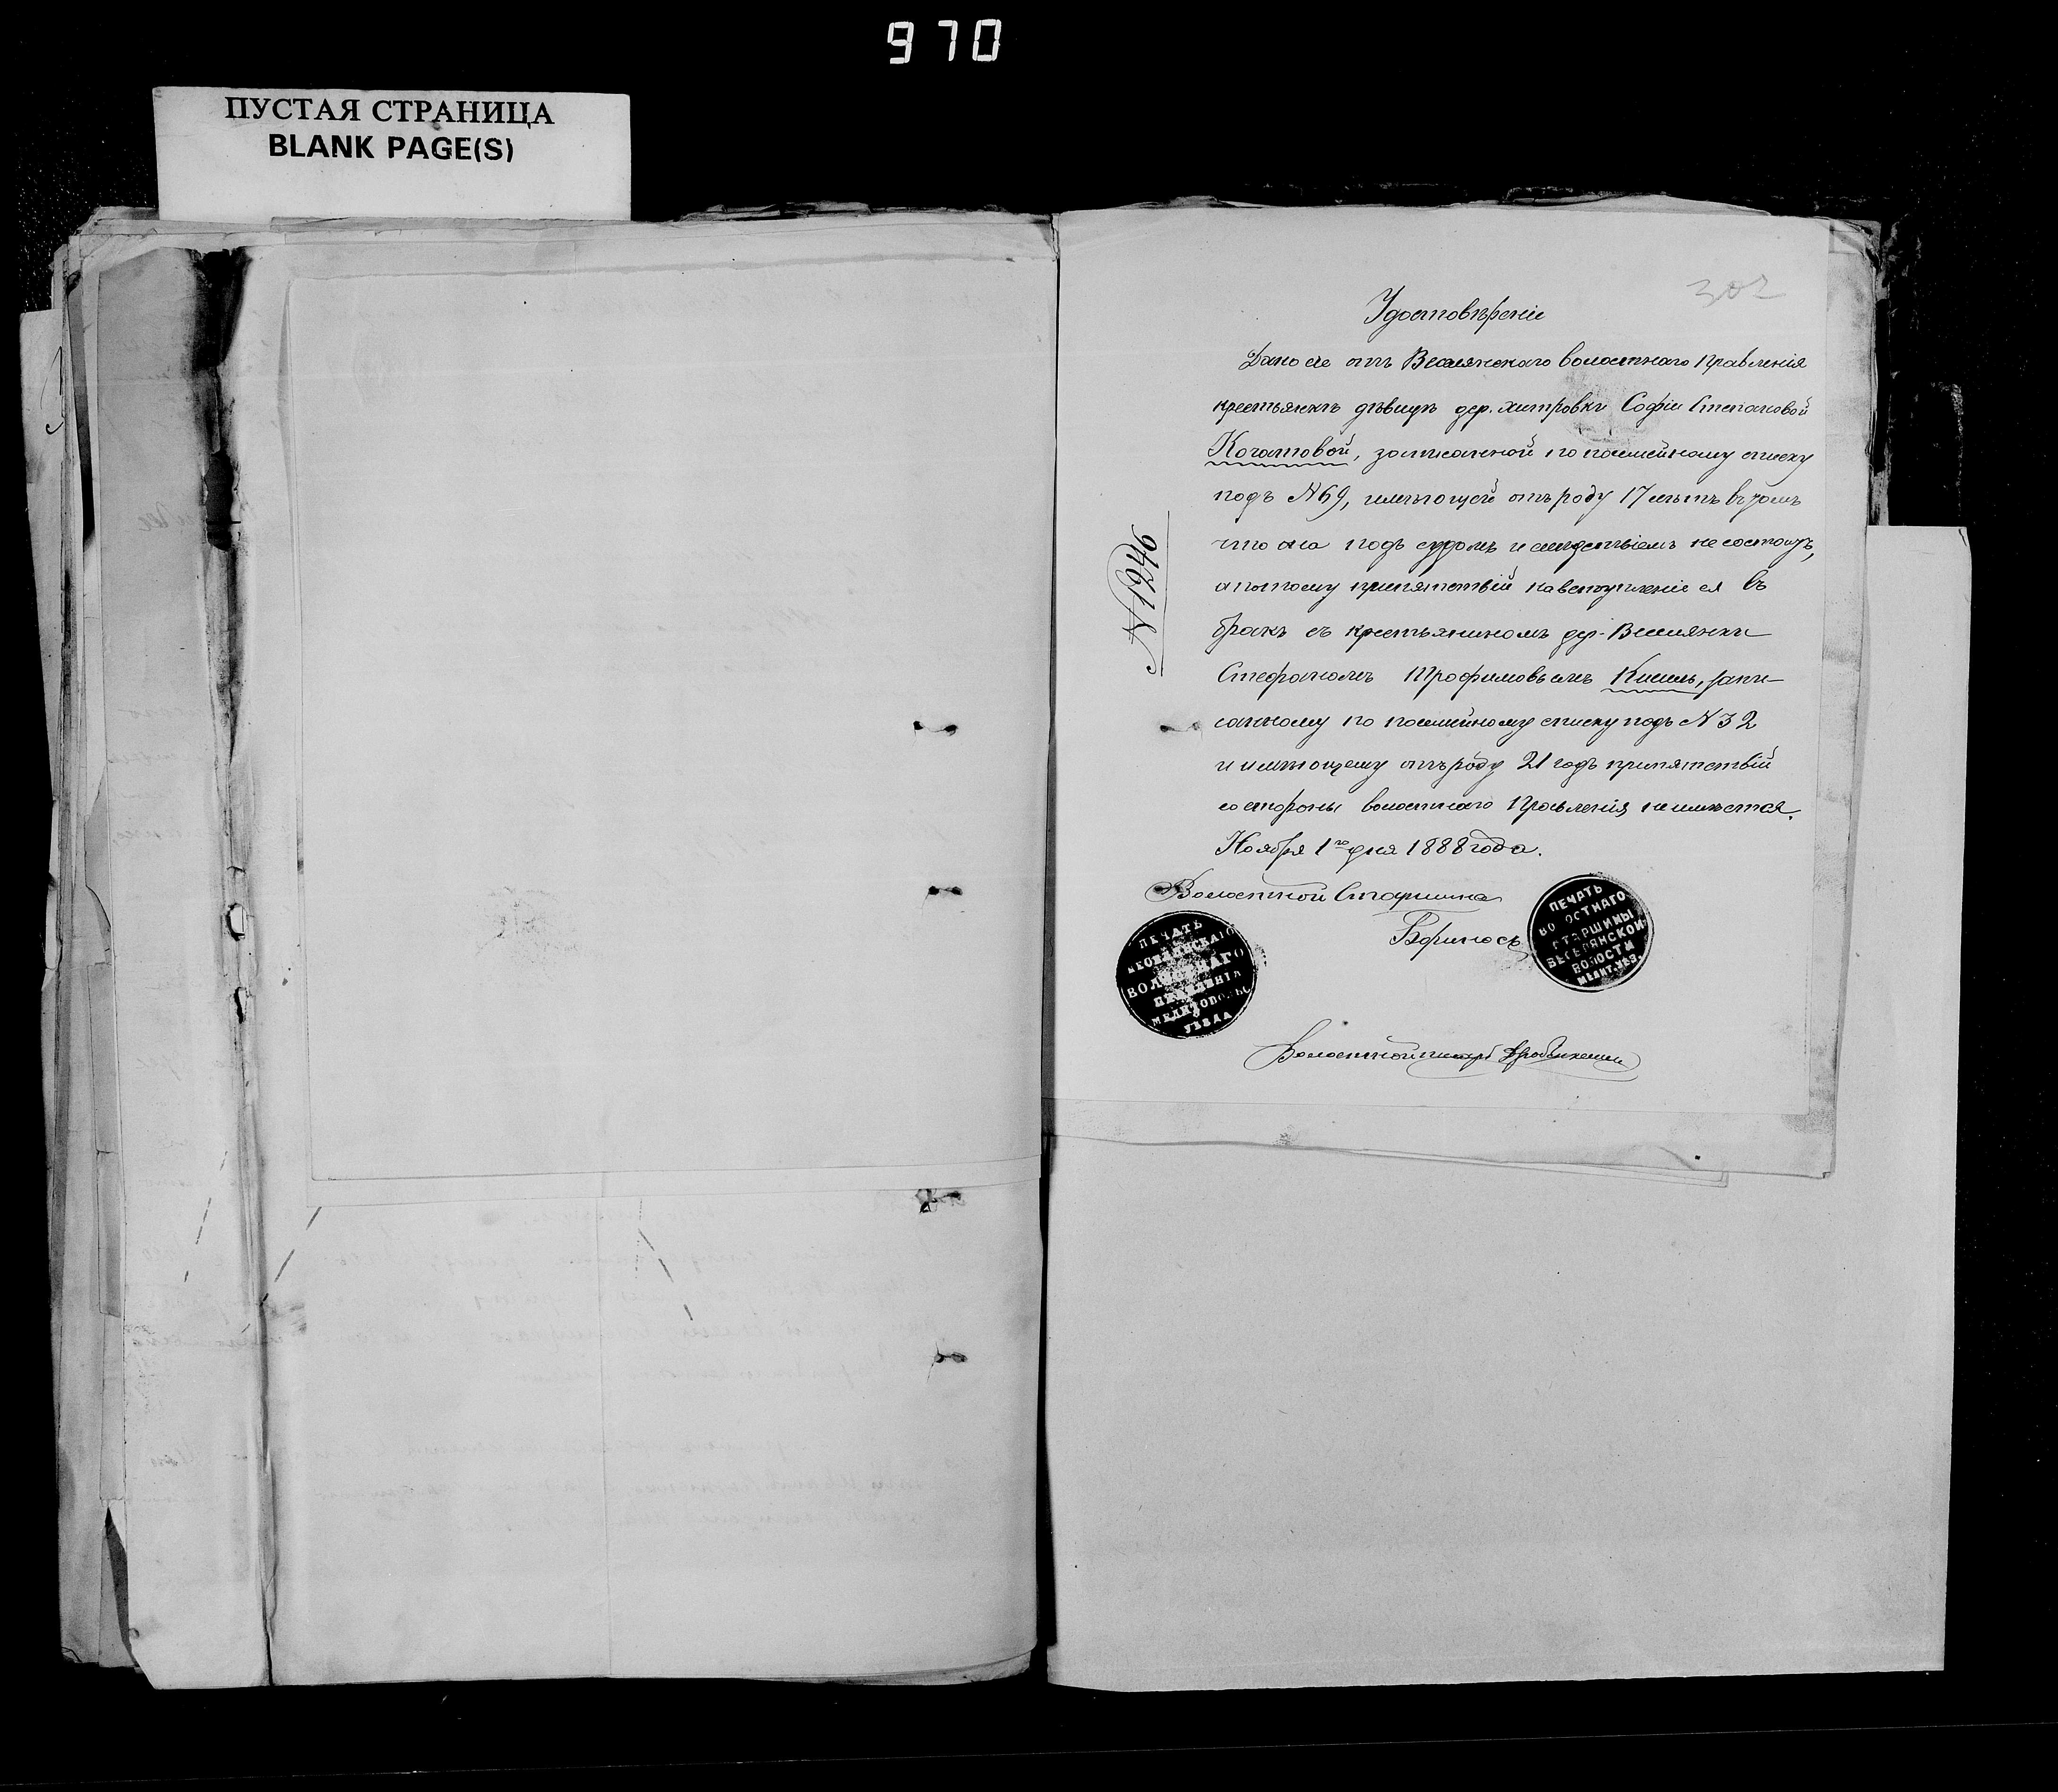 970
ПУСТАЯ СТРАНИЦА
BLANK PAGE(S)
302
Удостовѣреніе
Дано сіе отъ Веселянскаго волостнаго Правленія
крестьянкѣ дѣвицѣ дер. Хитровки Софіи Степановой
Когатовой, записанной по посемейному списку
подъ №69, имѣющей отъ роду 17 лѣтъ въ томъ
что она подъ судомъ и слѣдствіемъ не состоитъ,
а потому препятствій на вступленіе ея въ
бракъ съ крестьяниномъ дер. Веселянки
Стефаномъ Трофимовымъ Кисиль, запи-
санному по посемейному списку подъ №32
и имѣющему отъ роду 21 годъ припятствій
со стороны волостнаго Правленія не имѣется.
Ноября 1го дня 1888 года.
№1246
Волостной Старшина
ПЕЧАТЬ
ВОЛОСТНАГО
СТАРШИНЫ
ВЕСЕЛЯНСКОЙ
ВОЛОСТИ
МЕЛИТ. УѢЗ.
ПЕЧАТЬ
ВЕСЕЛЯНСКАГО
ВОЛОСТНАГО
ПРАВЛЕНІЯ
МЕЛИТОПОЛЬС
УѢЗДА
Волостной писарь